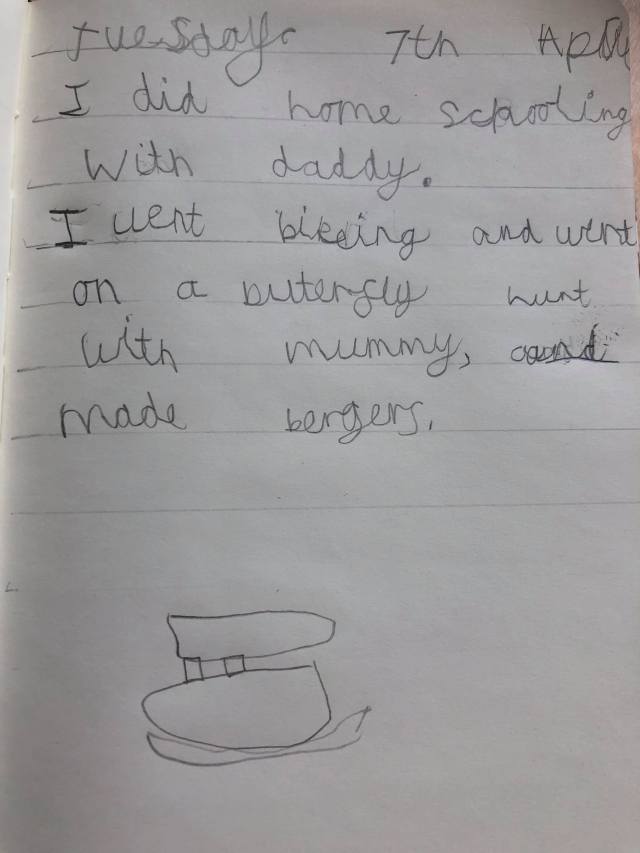 tuesday.  7th  April
I did home schooling
with daddy.
I went bikeing and went
on a buterfly hunt
with mummy, and
made bergers.